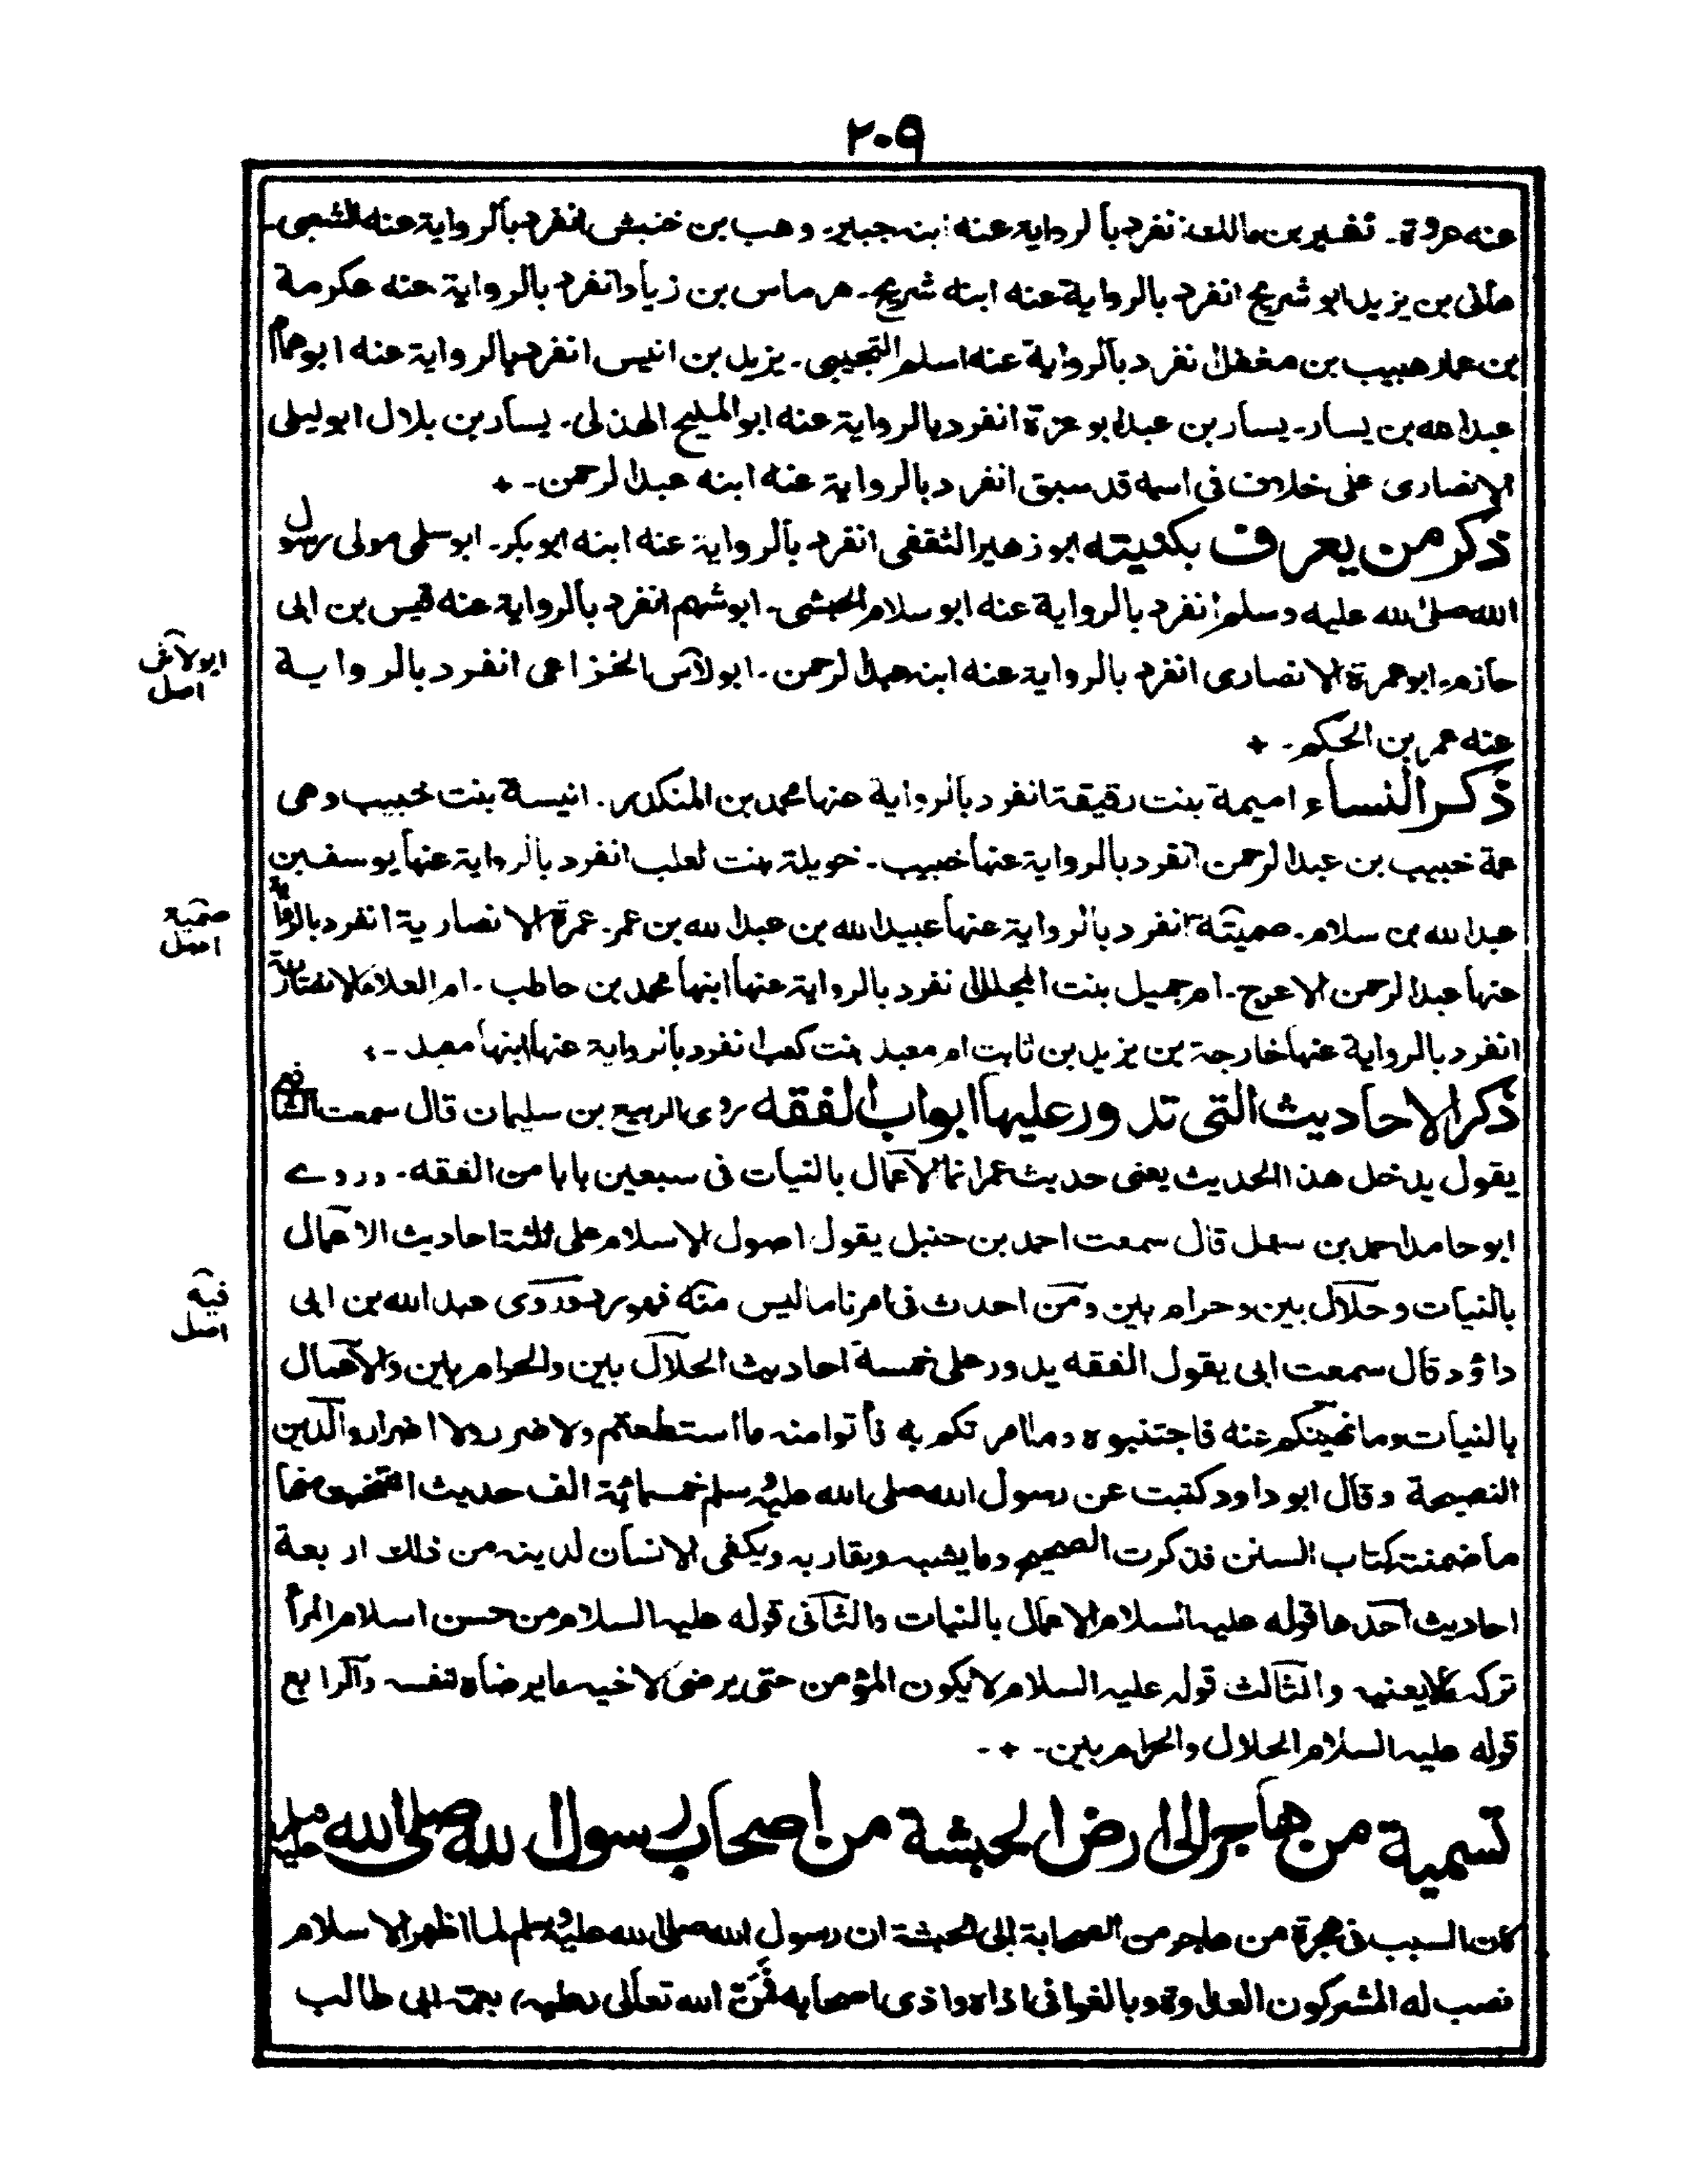 ٢٠٩
عنه عروة۔ نفير بن مالك انفرد بالرواية عنه ابنه جبير۔ وهب بن خنبش انفرد بالرواية عنه الشعبى۔
هانى بن يزيد ابو شريح انفرد بالرواية عنه ابنه شريح۔ هرماس بن زياد انفرد بالرواية عنه عكرمة
بن عمار هبيب بن مغفل انفرد بالرواية عنه اسلم التجيبى۔ يزيد بن انيس انفرد بالرواية عنه ابو همام
عبد الله بن يسار۔ يسار بن عبد ابو عزة انفرد بالرواية عنه ابو المليح الهذلى۔ يسار بن بلال ابو ليلى
الانصارى على خلاف فى اسمه قد سبق انفرد بالرواية عنه ابنه عبد الرحمن۔ +
ذكر من يعرف بكنيته ابو زهير الثقفى انفرد بالرواية عنه ابنه ابو بكر۔ ابو سلمى مولى رسول
الله صلى الله عليه وسلم انفرد بالرواية عنه ابو سلام الحبشى۔ ابو شهم انفرد بالرواية عنه قيس بن ابى
حازم۔ ابو عمرة الانصارى انفرد بالرواية عنه ابنه عبد الرحمن۔ ابو لاس الخزاعى انفرد بالرواية
عنه عمر بن الحكم۔ +
ذكر النساء اميمة بنت رقيقة انفرد بالرواية عنها محمد بن المنكدر۔ انيسة بنت خبيب وهى
عمة خبيب بن عبد الرحمن انفرد بالرواية عنها خبيب۔ خويلة بنت ثعلب انفرد بالرواية عنها يوسف بن
عبد الله بن سلام۔ صميتة انفرد بالرواية عنها عبيد الله بن عبد الله بن عمر۔ عمرة الانصارية انفرد بالرواية
عنها عبد الرحمن الاعرج۔ ام جميل بنت المجلل انفرد بالرواية عنها ابنها محمد بن حاطب۔ ام العلاء الانصارية
انفرد بالرواية عنها خارجة بن يزيد بن ثابت ام معبد بنت كعب انفرد بالرواية عنها ابنها معبد۔ +
ذكر الاحاديث التى تدور عليها ابواب الفقه روى الربيع بن سليمان قال سمعت الشافعى
يقول يدخل هذا الحديث يعنى حديث عمر انما الاعمال بالنيات فى سبعين بابا من الفقه۔ وروے
ابو حامد احمد بن سهل قال سمعت احمد بن حنبل يقول اصول الاسلام على ثلثة احاديث الاعمال
بالنيات وحلال بين وحرام بين ومن احدث فى امرنا ما ليس منه فهو رد وروى عبد الله بن ابى
داؤد قال سمعت ابى يقول الفقه يدور على خمسة احاديث الحلال بين والحرام بين والاعمال
بالنيات وما نهيتكم عنه فاجتنبوه وما امرتكم به فأتوا منه ما استطعتم ولا ضرر ولا اضرار والدين
النصيحة وقال ابو داود كتبت عن رسول الله صلى الله عليه وسلم خمسمائة الف حديث انتخبت منها
ما ضمنت كتاب السنن فذكرت الصحيح وما يشبهه ويقاربه ويكفى الانسان لدينه من ذلك اربعة
احاديث احدها قوله عليه السلام الاعمال بالنيات والثانى قوله عليه السلام من حسن اسلام المرأ
تركه مالا يعنيه والثالث قوله عليه السلام لا يكون المؤمن حتى يرضى لاخيه ما يرضاه لنفسه والرابع
قوله عليه السلام الحلال والحرام بين۔ +-
تسمية من هاجر الى ارض الحبشة من اصحاب رسول لله صلى الله عليه وسلم
كان السبب فى هجرة من هاجر من الصحابة الى الحبشة ان رسول الله صلى الله عليه وسلم لما اظهر الاسلام
نصب له المشركون العداوة وبالغوا فى اذاه واذى اصحابه فمن الله تعالى عليه بعمه ابى طالب
ابو لاس
اصل
اصل
فيه
اصل